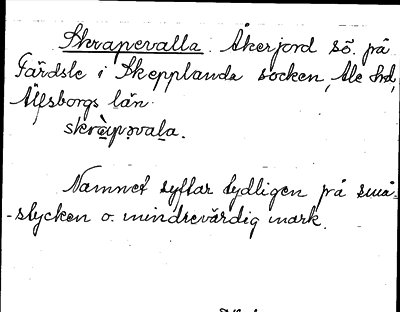 Skrapevalla. Åkerjord sö. på
Färdsle i Skepplanda socken, Ale hd,
Älfsborgs län.
skràpǝvala.
Namnet syftar tydligen på små-
-stycken o. mindrevärdig mark.